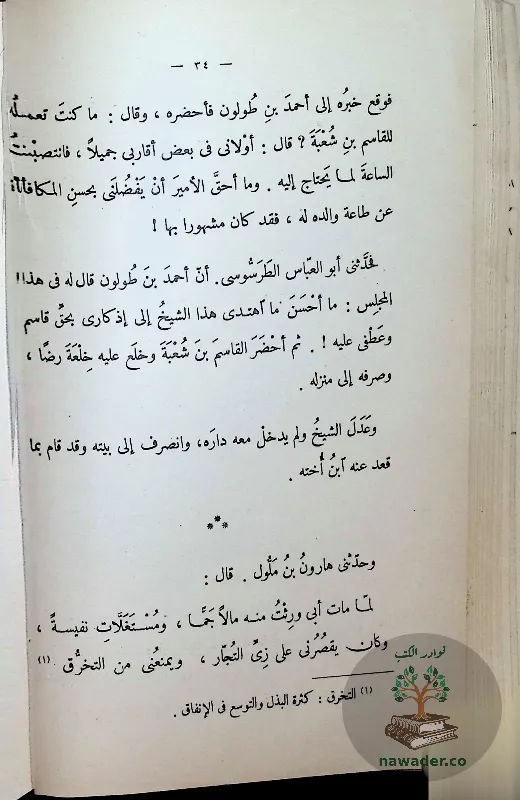 — ٣٤ —
فوقع خبرُه إلى أحمدَ بنِ طُولون فأحضره ، وقال : ما كنتَ تعمــلُه
للقاسم بنِ شُعْبَةَ ؟ قال : أوْلانى فى بعض أقاربى جميلاً ، فانتصبْــتُ
الساعةَ لمــا يَحتاج إليه . وما أحقَّ الأميرَ أنْ يَفْضُلَنى بحسنِ المــكافأة
عن طاعة والده له ، فقد كان مشهورا بها !
فحدَّثنى أبو العبّاس الطَرَسُوسى. أنّ أحمدَ بنَ طُولون قال له فى هذا
المجلِس : ما أحْسَنَ ما آهتــدى هذا الشيخُ إلى إذكارى بحقِّ قاسم
وعَطْفى عليه ! . ثم أحْضَرَ القاسمَ بنَ شُعْبَةَ وخلَع عليه خِلْعَةَ رضًا ،
وصرفه إلى منزله .
وعَدَلَ الشيخُ ولم يدخلْ معه دارَه، وانصرف إلى بيته وقد قام بما
قعد عنه آبنُ أخته .
***
وحدّثنى هارونُ بنُ مَلُّول . قال :
لمّا مات أبى ورِثْتُ منــه مالاً جَمًّا ، ومُسْــتَغَلَّاتٍ نفيسةً ،
وكان يقصُرُنى على زِىِّ التُجّار ، ويمنعُنى من التخرُّق (١)
(١) التخرق : كثرة البذل والتوسع فى الإنفاق .
نوادر الكتب
nawader.co